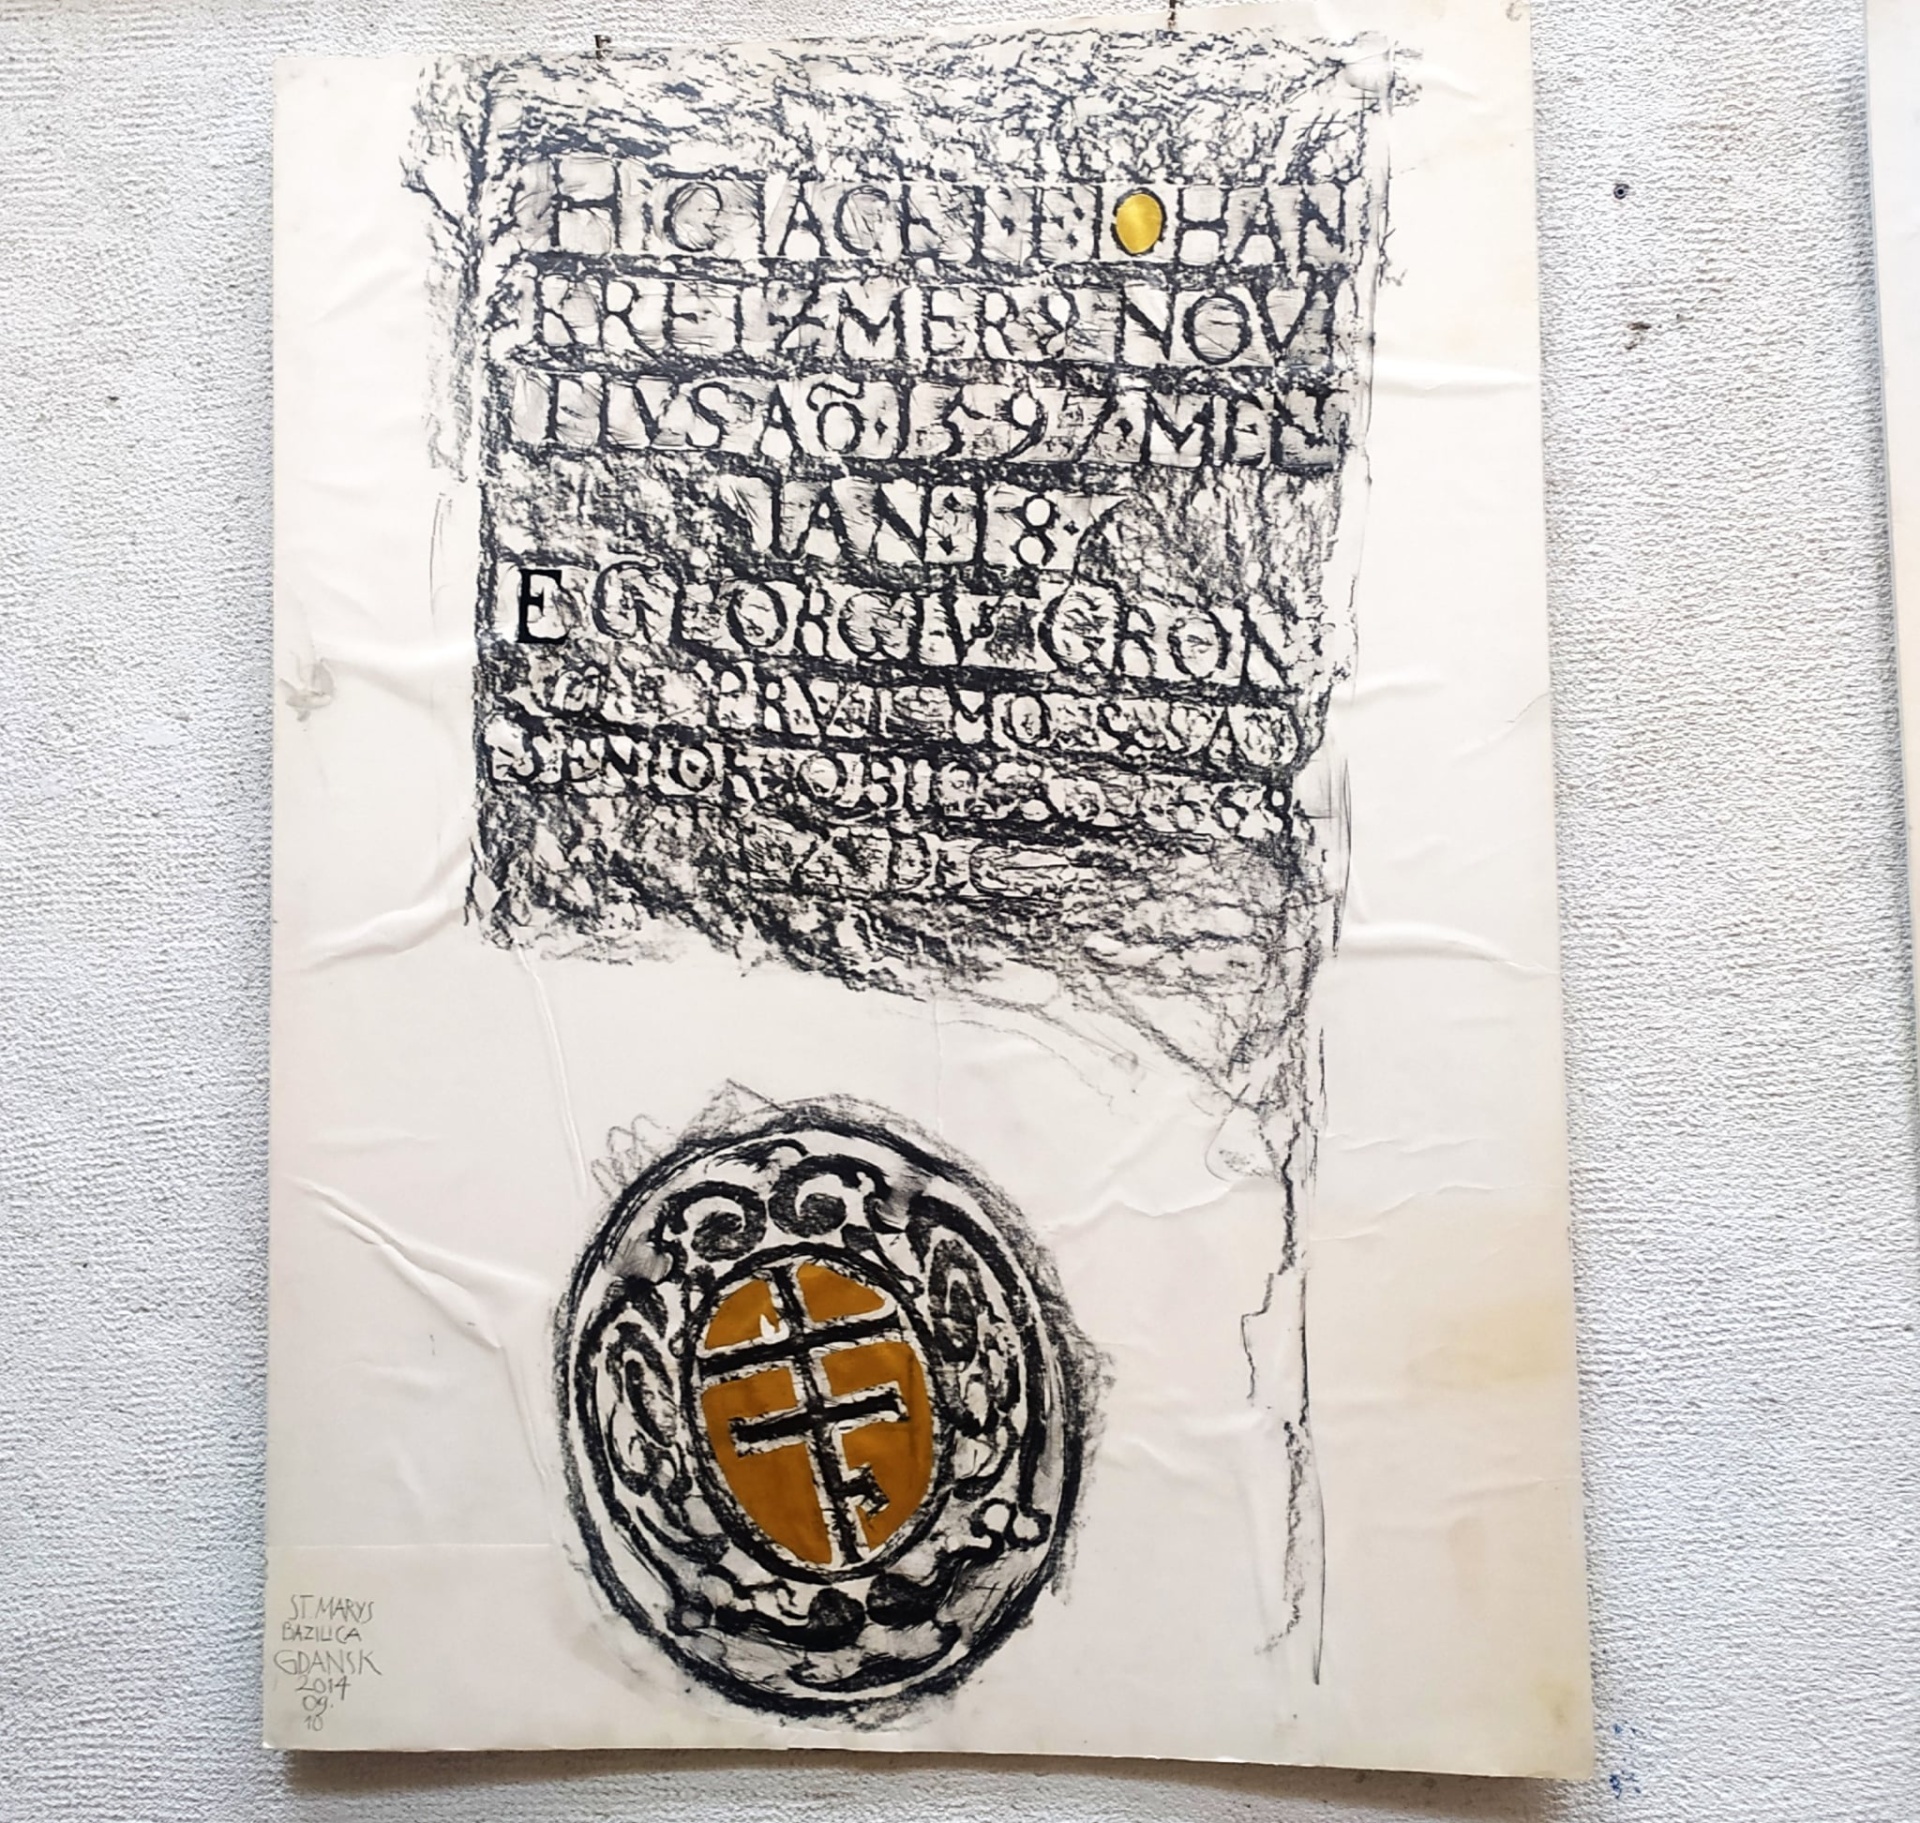 HIC IACET ET IOHAN
KRETZMER & NOVI
ELVS AÕ 1597 MEN
IAN 18
E GEORGIV GRON
PRVT
SENIOR OBIIT
DEC
ST. MARYS
BAZILICA
GDANSK
2014
09.
10